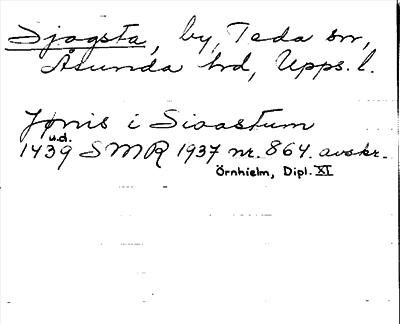 Sjogsta, by, Teda sn,
Åsunda hd, Upps. l.
Jønis i Sioastum
u.d.
1439 SMR 1937 nr. 864. avskr.
Örnhielm, Dipl. XI